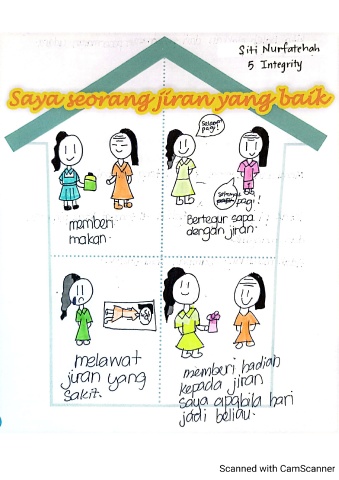 Siti Nurfatehah
5 Integrity
Saya seorang jiran yang baik
Selamat
pagi!
Selamat
pagi!
memberi
makan.
Bertegur sapa
dengan jiran.
melawat
jiran yang
sakit.
memberi hadiah
kepada jiran
saya apabila hari
jadi beliau.
Scanned with CamScanner